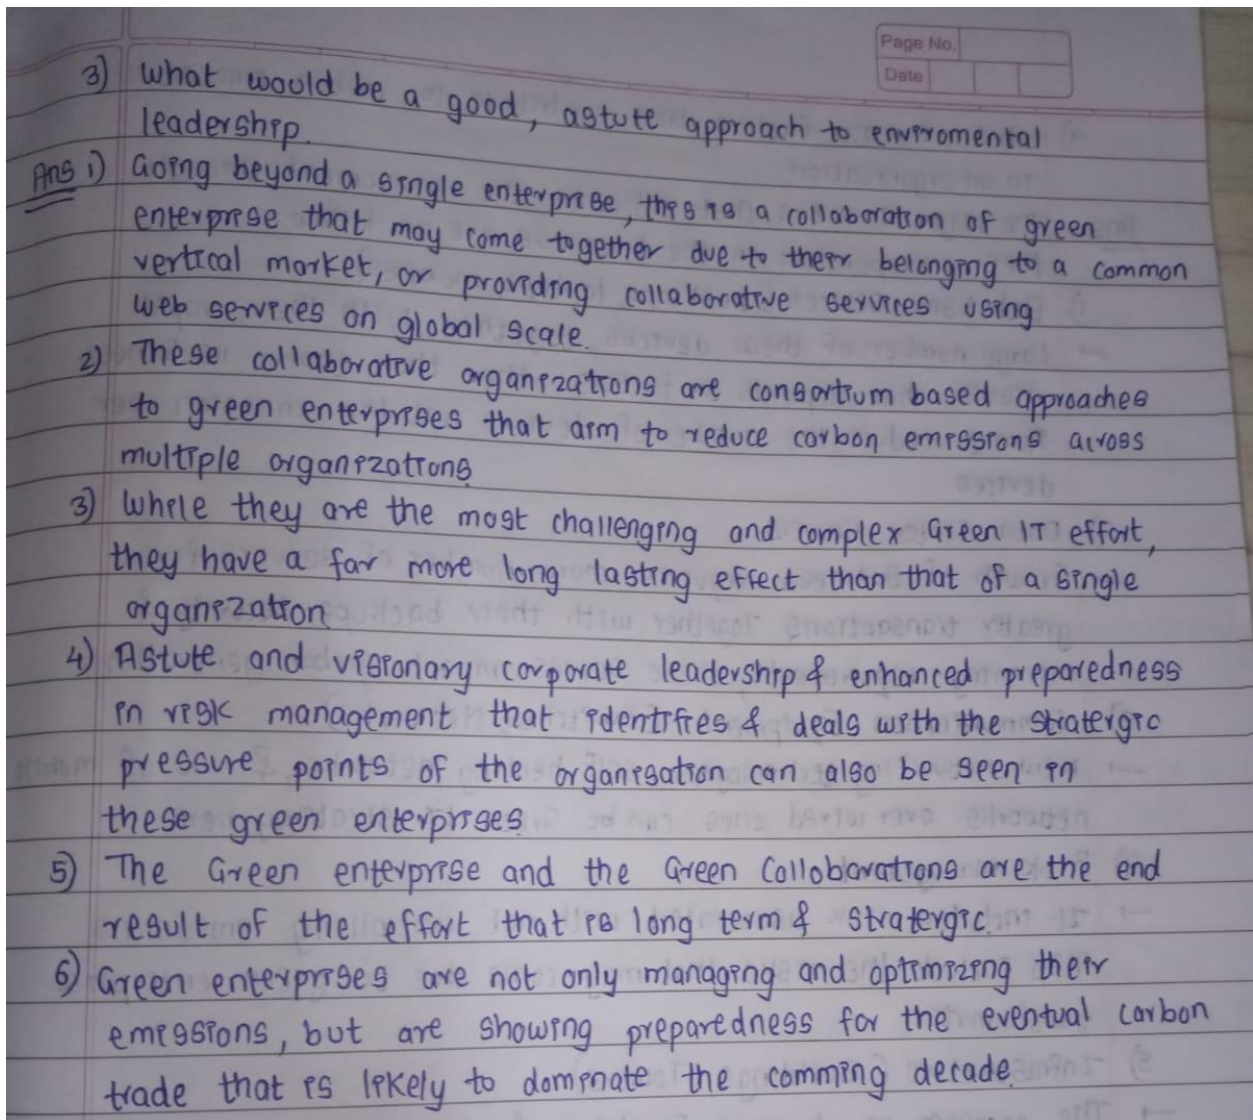 Page No.
Date
3) What would be a good, astute approach to enviromental
leadership.
Ans 1) Going beyond a single enterprise, this is a collaboration of green
enterprise that may come together due to their belonging to a common
vertical market, or providing collaborative services using
web services on global scale.
2) These collaborative organizations are consortium based approaches
to green enterprises that aim to reduce carbon emissions across
multiple organizations
3) While they are the most challenging and complex Green IT effort,
they have a far more long lasting effect than that of a single
organization
4) Astute and visionary corporate leadership & enhanced preparedness
in risk management that identifies & deals with the stratergic
pressure points of the organisation can also be seen in
these green enterprises
5) The Green enterprise and the Green Collobarations are the end
result of the effort that is long term & stratergic.
6) Green enterprises are not only managing and optimizing their
emissions, but are showing preparedness for the eventual carbon
trade that is likely to dominate the comming decade.